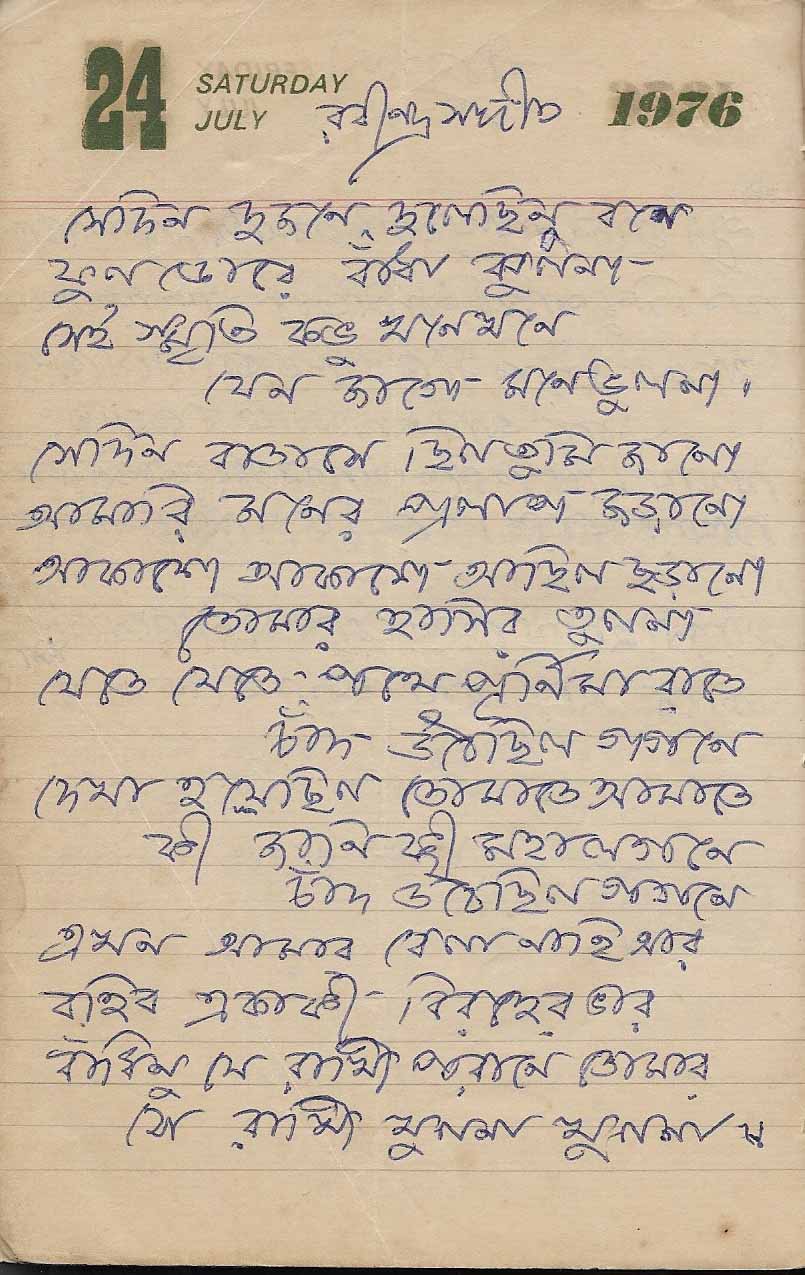 24 SATURDAY JULY 1976
রবীন্দ্রসঙ্গীত
সেদিন দুজনে দুলেছিনু বনে
ফুল ডোরে বাঁধা ঝুলনা
সেই স্মৃতি কভু খনেখনে
যেন জাগে মনে ভুলনা।
সেদিন বাতাসে ছিল তুমি জানো
আমারি মনের প্রলাপ জড়ানো
আকাশে আকাশে আছিল ছড়ানো
তোমার হাসির তুলনা
যেতে যেতে পথে পূর্ণিমা রাতে
চাঁদ উঠেছিল গগনে
দেখা হয়েছিল তোমাতে আমাতে
কী জানি কী মহা লগনে
চাঁদ উঠেছিল গগনে
এখন আমার বেলা নাহি আর
বহিব একাকী বিরহের ভার
বাঁধিনু যে রাখী পরানে তোমার
সে রাখী খুলনা খুলনা॥